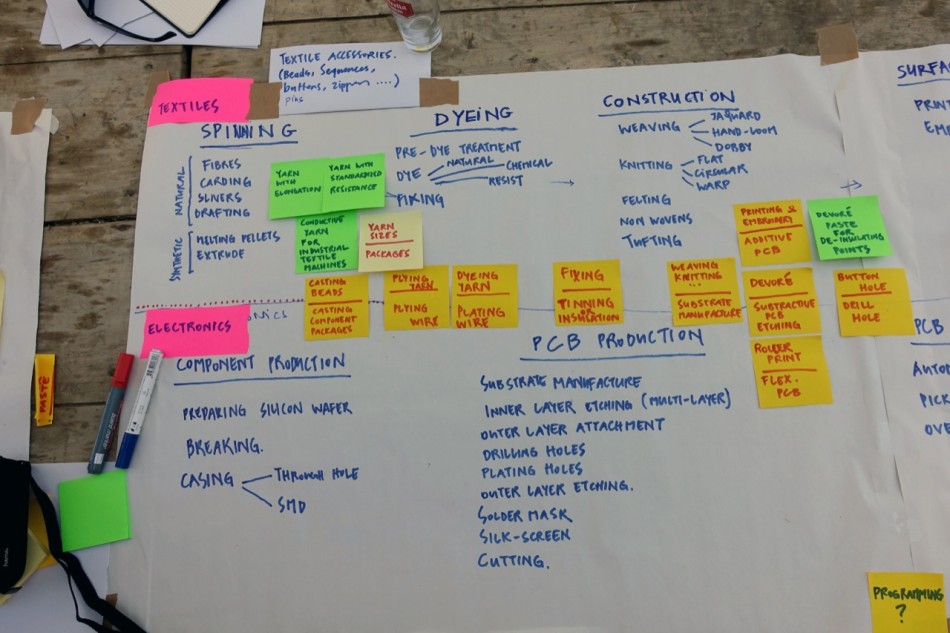 TEXTILE ACCESSORIES.
(Beads, Sequences,
buttons, zippers ....)
pins
TEXTILES
SPINNING
NATURAL
FIBRES
CARDING
SLIVERS
DRAFTING
SYNTHETIC
MELTING PELLETS
EXTRUDE
YARN
WITH
ELONGATION
YARN WITH
STANDARDISED
RESISTANCE
CONDUCTIVE
YARN
FOR
INDUSTRIAL
TEXTILE
MACHINES
YARN
SIZES
PACKAGES
DYEING
PRE-DYE TREATMENT
DYE
NATURAL
CHEMICAL
RESIST
FIXING
CONSTRUCTION
WEAVING
JAQUARD
HAND-LOOM
DOBBY
KNITTING
FLAT
CIRCULAR
WARP
FELTING
NON WOVENS
TUFTING
SURFA
PRIN
EM
PRINTING &
EMBROIDERY
ADDITIVE
PCB
DEVORÉ
PASTE
FOR
DE-INSULATING
POINTS
CASTING
BEADS
CASTING
COMPONENT
PACKAGES
PLYING
YARN
PLYING
WIRE
DYEING
YARN
PLATING
WIRE
FIXING
TINNING
OR
INSULATION
WEAVING
KNITTING
...
SUBSTRATE
MANUFACTURE
DEVORÉ
SUBTRACTIVE
PCB
ETCHING
BUTTON
HOLE
DRILL
HOLE
ROLLER
PRINT
FLEX.
PCB
ELECTRONICS
onics
COMPONENT PRODUCTION
PREPARING SILICON WAFER
BREAKING.
CASING
THROUGH HOLE
SMD
PCB PRODUCTION
SUBSTRATE MANUFACTURE
INNER LAYER ETCHING (MULTI-LAYER)
OUTER LAYER ATTACHMENT
DRILLING HOLES
PLATING HOLES
OUTER LAYER ETCHING.
SOLDER MASK
SILK-SCREEN
CUTTING.
PCB
AUTO
PICK
OVE
PASTE
PROGRAMMING
?